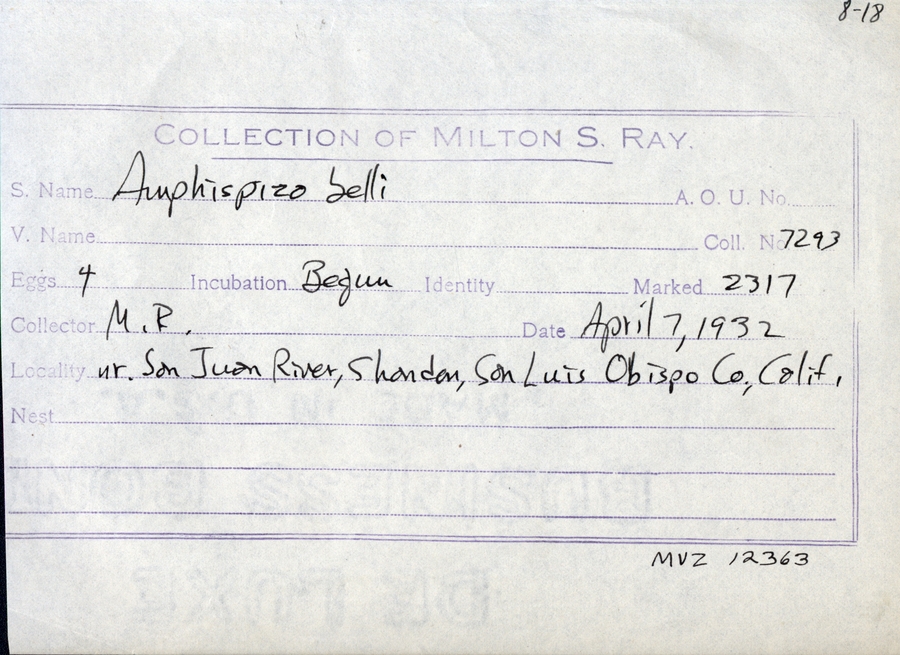 8-18
COLLECTION OF MILTON S. RAY.
S. Name Amphispiza belli A. O. U. No.
V. Name Coll. No 7293
Eggs 4 Incubation Begun Identity Marked 2317
Collector M. R. Date April 7, 1932
Locality nr. San Juan River, Shandon, San Luis Obispo Co., Calif.
Nest
MVZ 12363